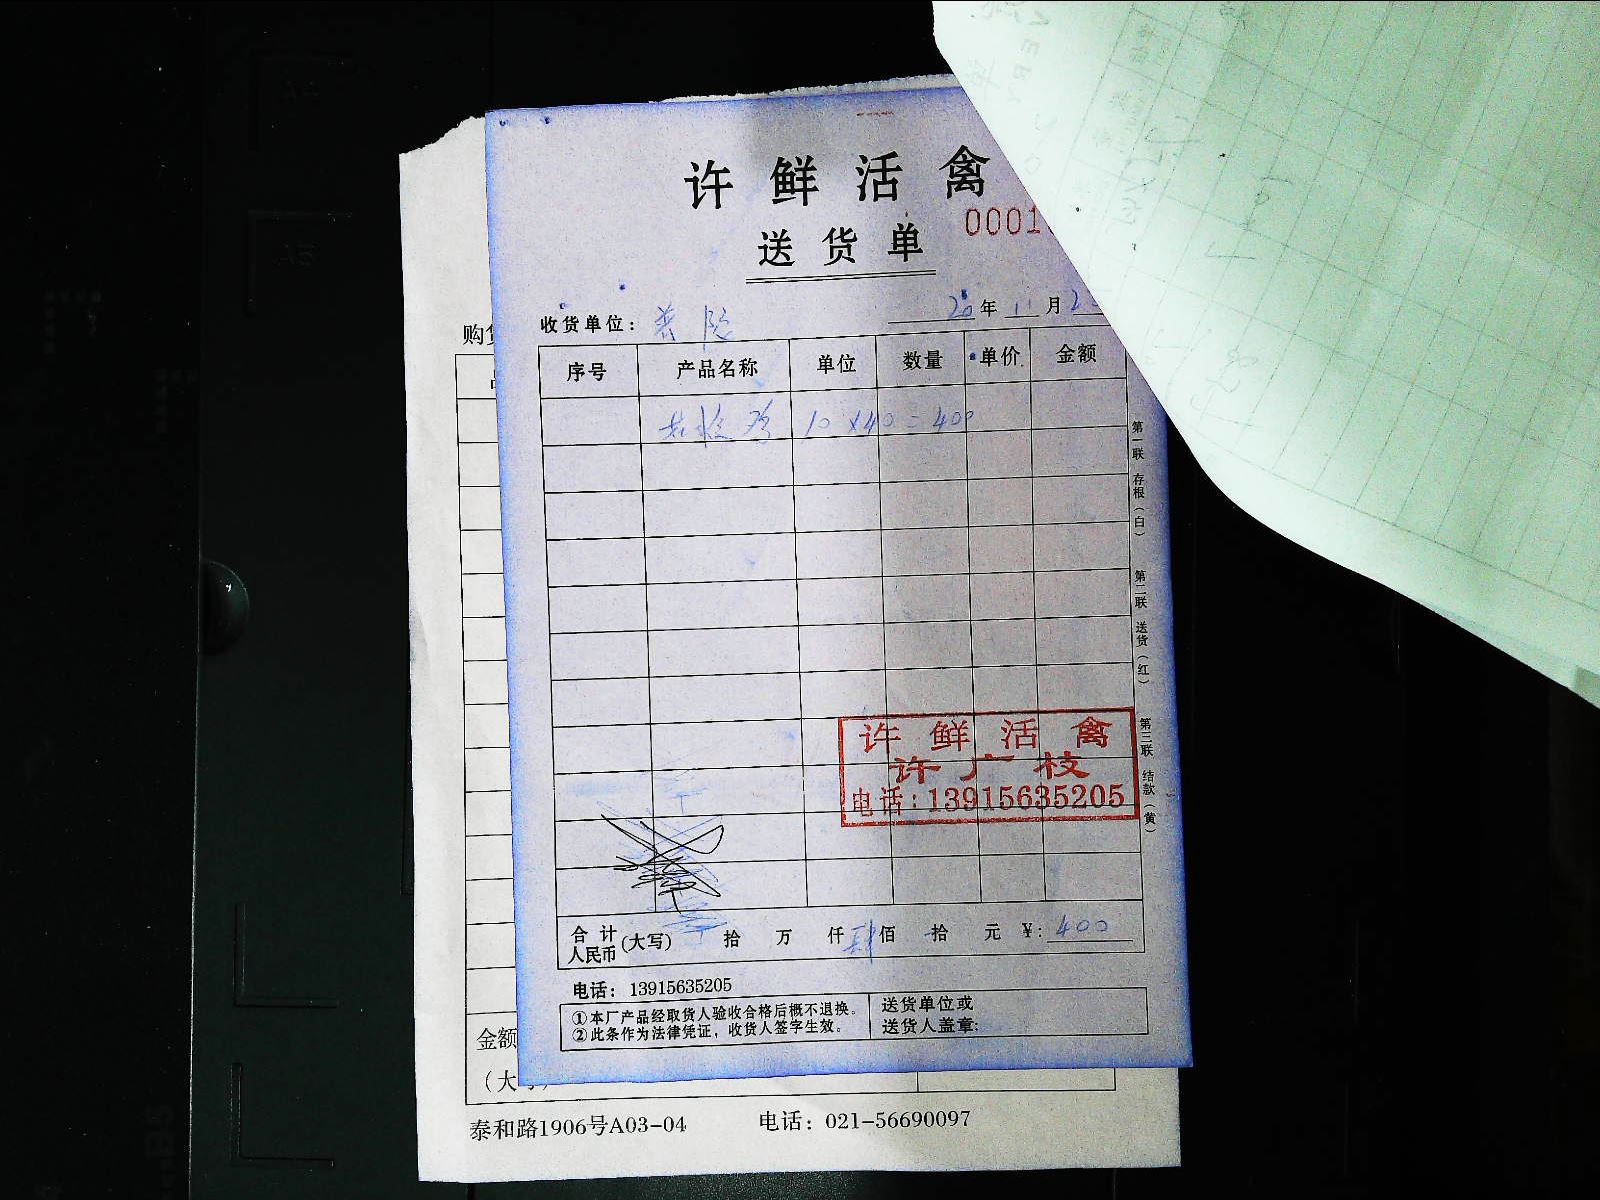 许鲜活禽
送货单
0001
收货单位：普陀 20年11月2
序号 产品名称 单位 数量 单价 金额
10×40=400
第一联 存根（白） 第二联 送货（红） 第三联 结款（黄）
许鲜活禽
许广枝
电话：13915635205
合计人民币(大写) 拾 万 仟肆佰 拾 元 ¥: 400
电话：13915635205
①本厂产品经取货人验收合格后概不退换。
②此条作为法律凭证，收货人签字生效。
送货单位或
送货人盖章：
购货
金额
（大写）
泰和路1906号A03-04 电话：021-56690097